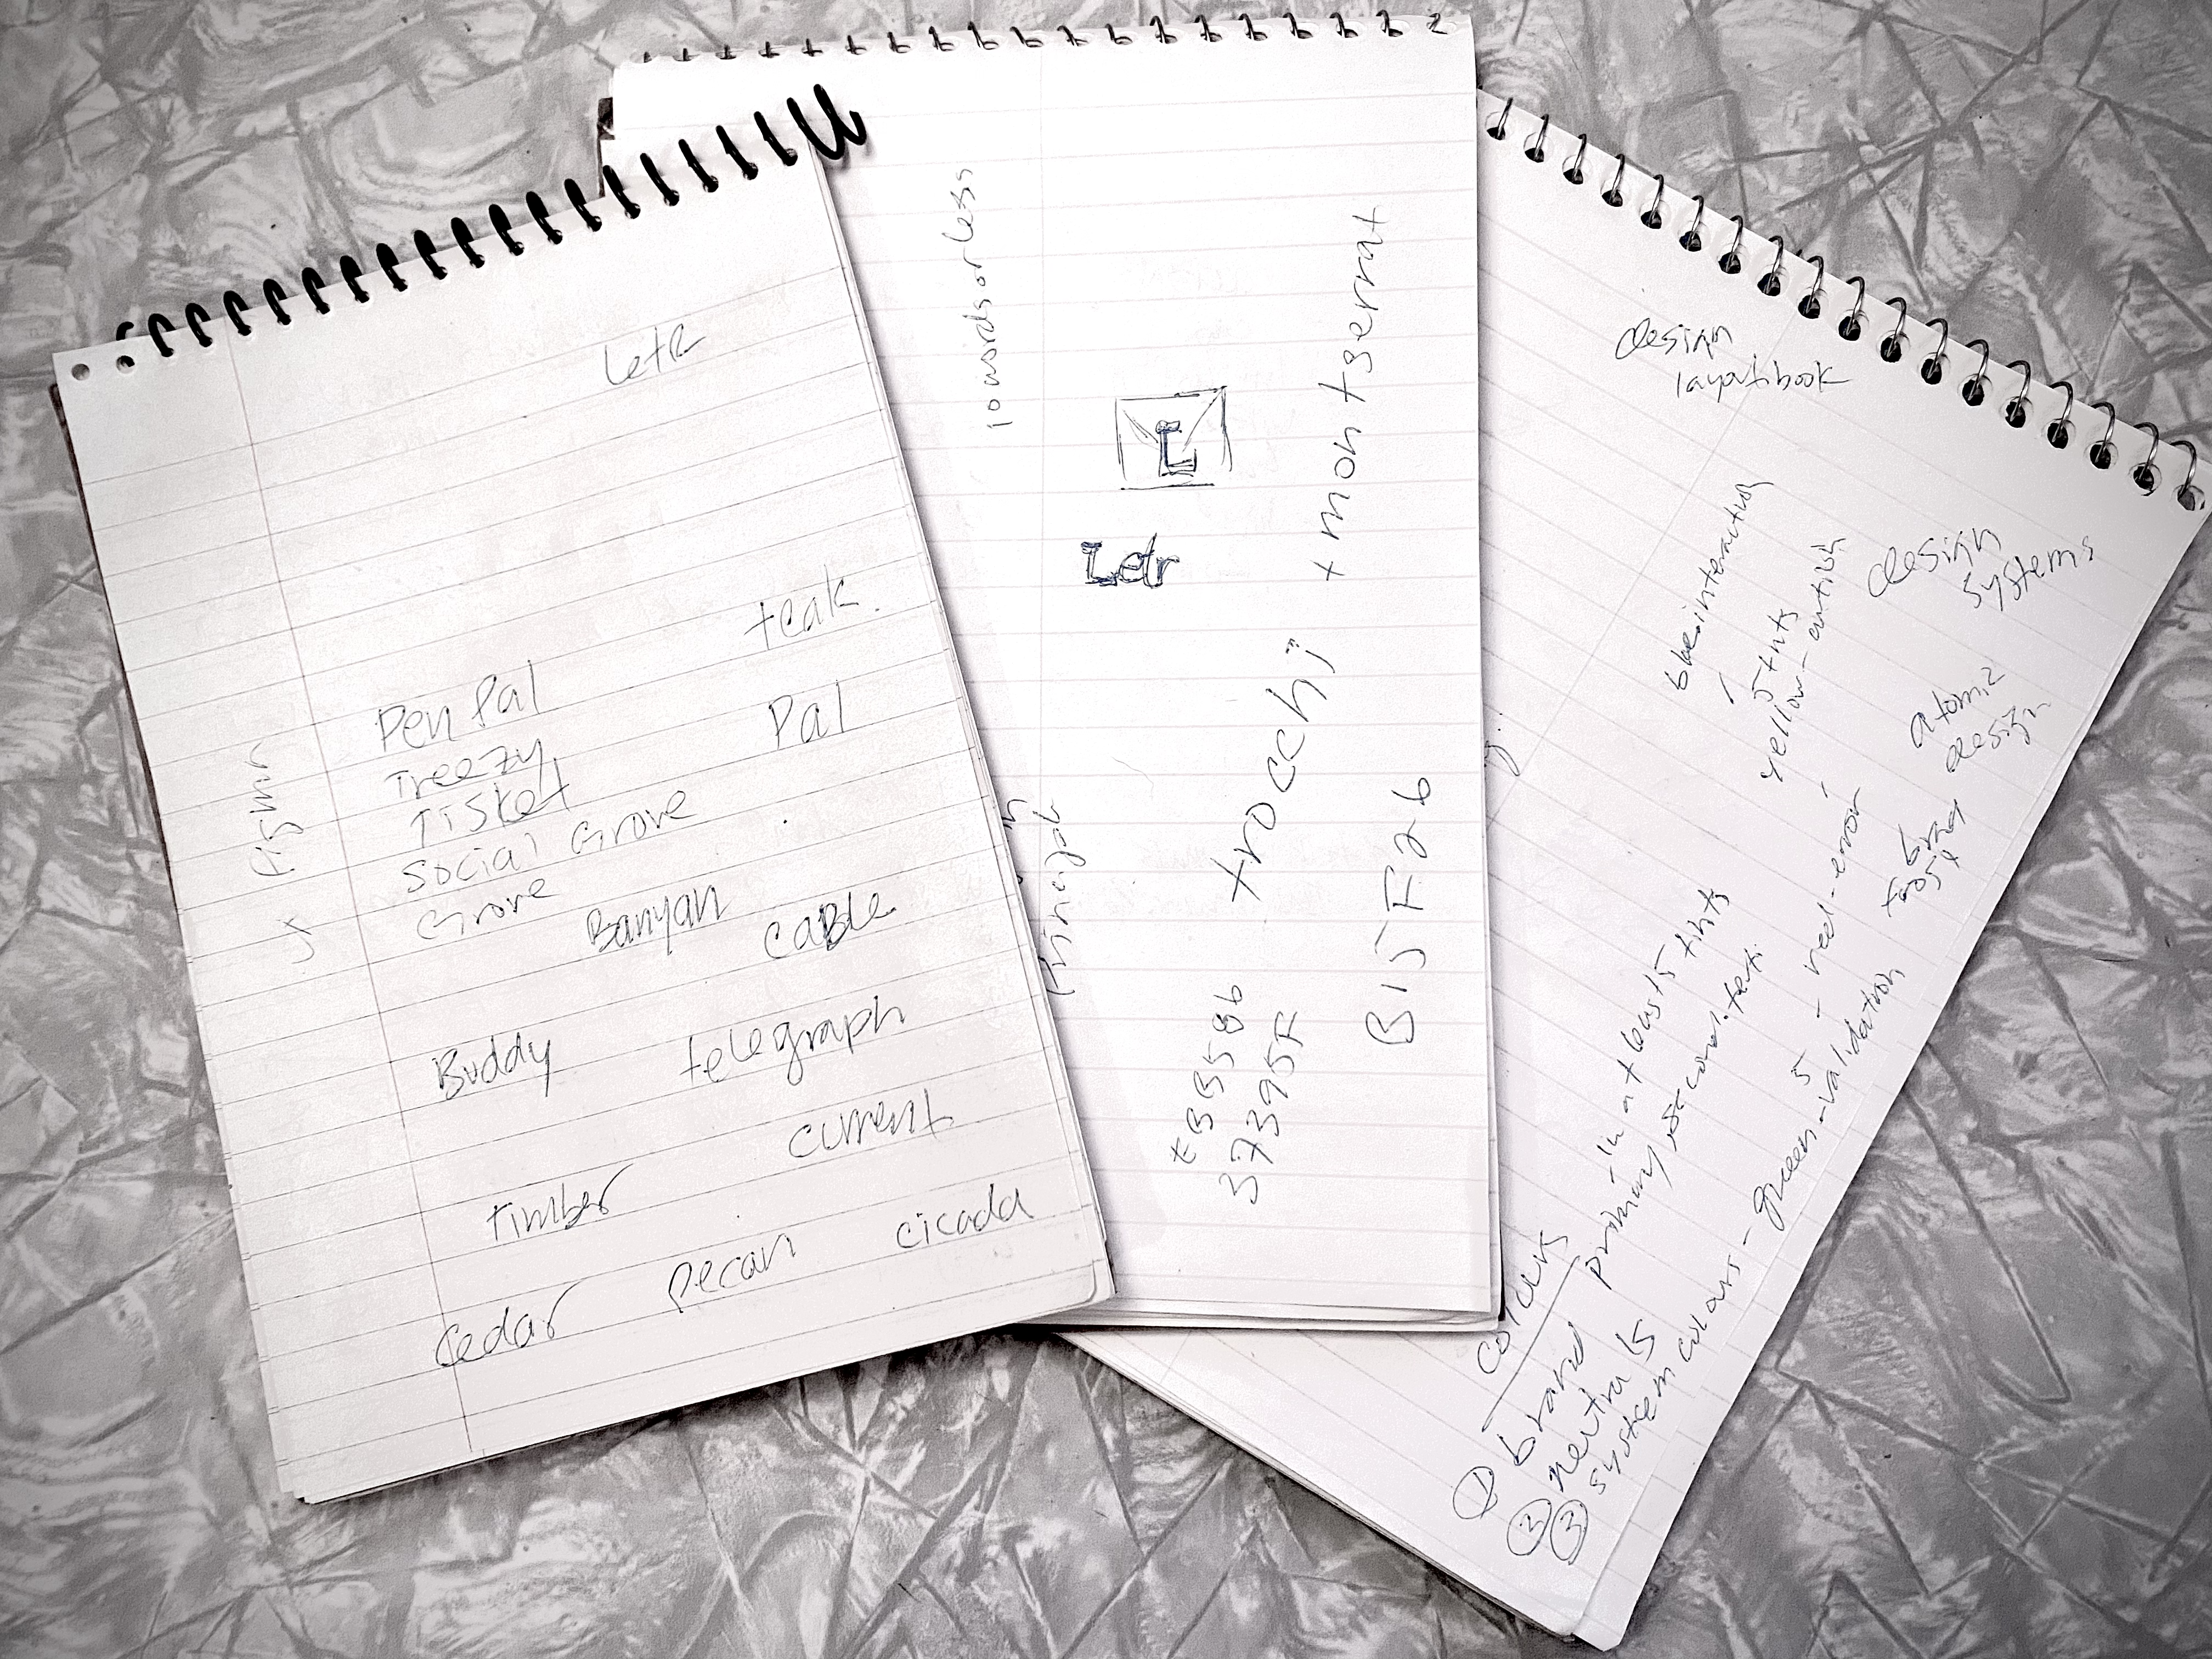 Letr
teak.
Pen Pal
Pal
Treezy
Tisket
Social Grove
Grove
Banyan
caBle
Buddy
telegraph
current
timber
pecan
cicada
Cedar
10 words or less
L
Letr
+ montserrat
trocchi
B15F2b
373F
design
layout book
design
systems
atomic
design
blue interactive
5 tints
yellow - caution
5 - red - error
colours
in at least 5 tints
① brand
primary, second. text.
② neutrals
③ system colours - green - validation